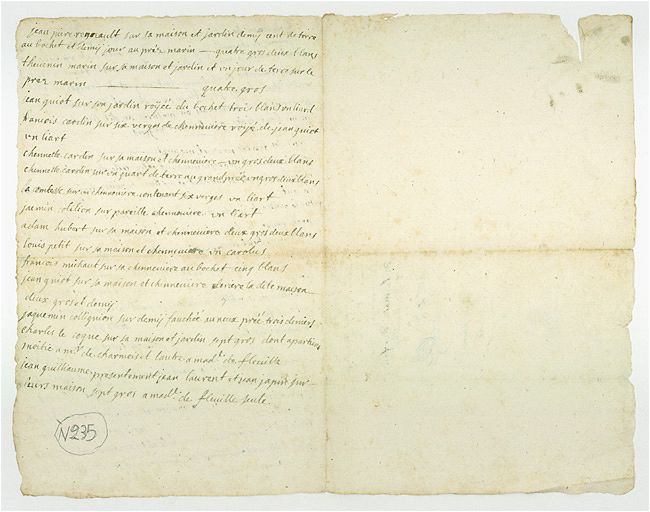 jean pierre sur sa maison et jardin demij cent de terre
au bochet et demij jour au préz marin — quatre gros deux blans
thevenin marin sur sa maison et jardin et un jour de terre sur le
prez marin — quatre gros
jean quiot sur son jardin royée du bochet trois blans un liard
françois cardin sur six verges de chenneviere royé de jean quiot
un liart
chennelle cardin sur sa maison et chenneviere — un gros deux blans
chennelle cardin sur un quart de terre au grand préz un gros deux blans
la sur un chenneviere contenant six verges un liart
jacmin sur pareille chenneviere un liart
adam hubert sur sa maison et chenneviere deux gros deux blans
louis petit sur sa maison et chenneviere un carolus
françois michaut sur sa chenneviere au bochet cinq blans
jean quiot sur sa maison et chenneviere derrere la dite maison
deux gros et demij
jaquemin collignion sur demij fauchée au neux préé trois deniers
charles le coque sur sa maison et jardin sept gros dont apartien
moitié a mr. de charmois et lautre a madl. de fleville
jean guilhaume presentement jean laurent et jean japin sur
leurs maison sept gros a madl. de fleville seule.
N235